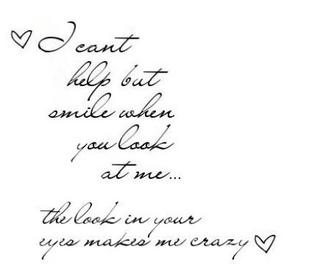 I cant
help but
smile when
you look
at me...
the look in your
eyes makes me crazy